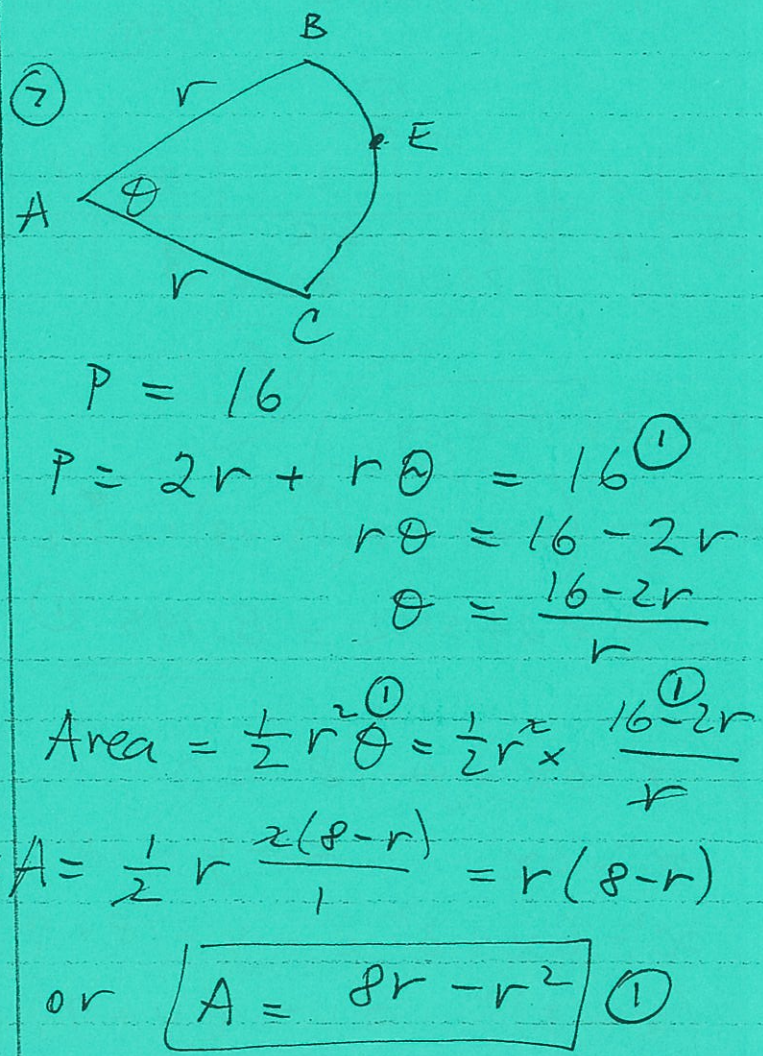 B
⑦ r
E
A θ
r
C
P = 16
P = 2r + rθ = 16 ①
rθ = 16 - 2r
θ = \frac{16-2r}{r}
Area = \frac{1}{2} r² θ ① = \frac{1}{2} r² × \frac{16-2r}{r} ①
A = \frac{1}{2} r \frac{2(8-r)}{1} = r(8-r)
or A = 8r - r² ①